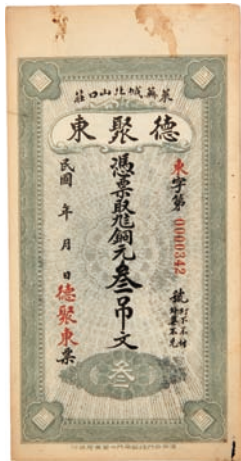 莊口山北城蕪萊
東聚德
東字第0000342號
憑票取銅元叁吊文
民國 年 月 日德聚東票
叁